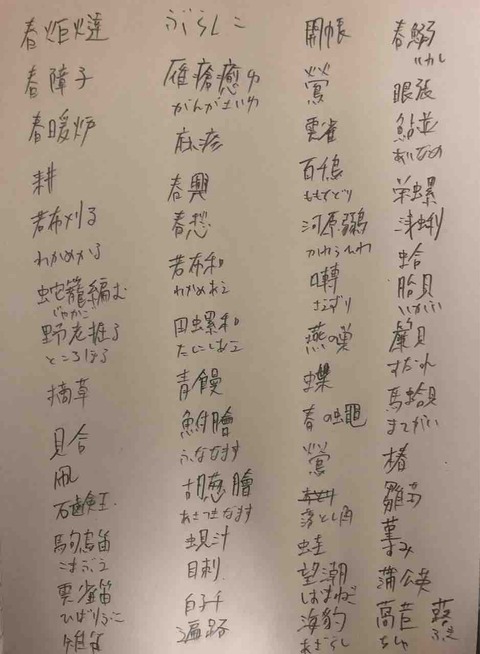 春炬燵
春障子
春暖炉
耕
若布刈る
わかめかる
蛇籠編む
じゃかご
野老掘る
ところほる
摘草
見合
凧
石鹸玉
駒鳥笛
こまぶえ
雲雀笛
ひばりぶえ
雉笛
ぶらんこ
雁瘡癒ゆ
がんがさいゆ
麻疹
春興
春愁
若布和
わかめあえ
田螺和
たにしあえ
青饅
鮒膾
ふななます
胡葱膾
あさつきなます
蜆汁
目刺
白子干
遍路
開帳
鶯
雲雀
百千鳥
ももちどり
河原鶸
かわらひわ
囀
さえずり
燕の巣
蝶
春の蠅
鶯
落とし角
蛙
望潮
しおまねき
海豹
あざらし
春鰯
いわし
眼張
鮎並
あいなめ
栄螺
浅蜊
蛤
胎貝
いがい
簾貝
すだれ
馬蛤貝
まてがい
椿
雛菊
菫
すみれ
蒲公英
萵苣
ちしゃ
蕗
ふき